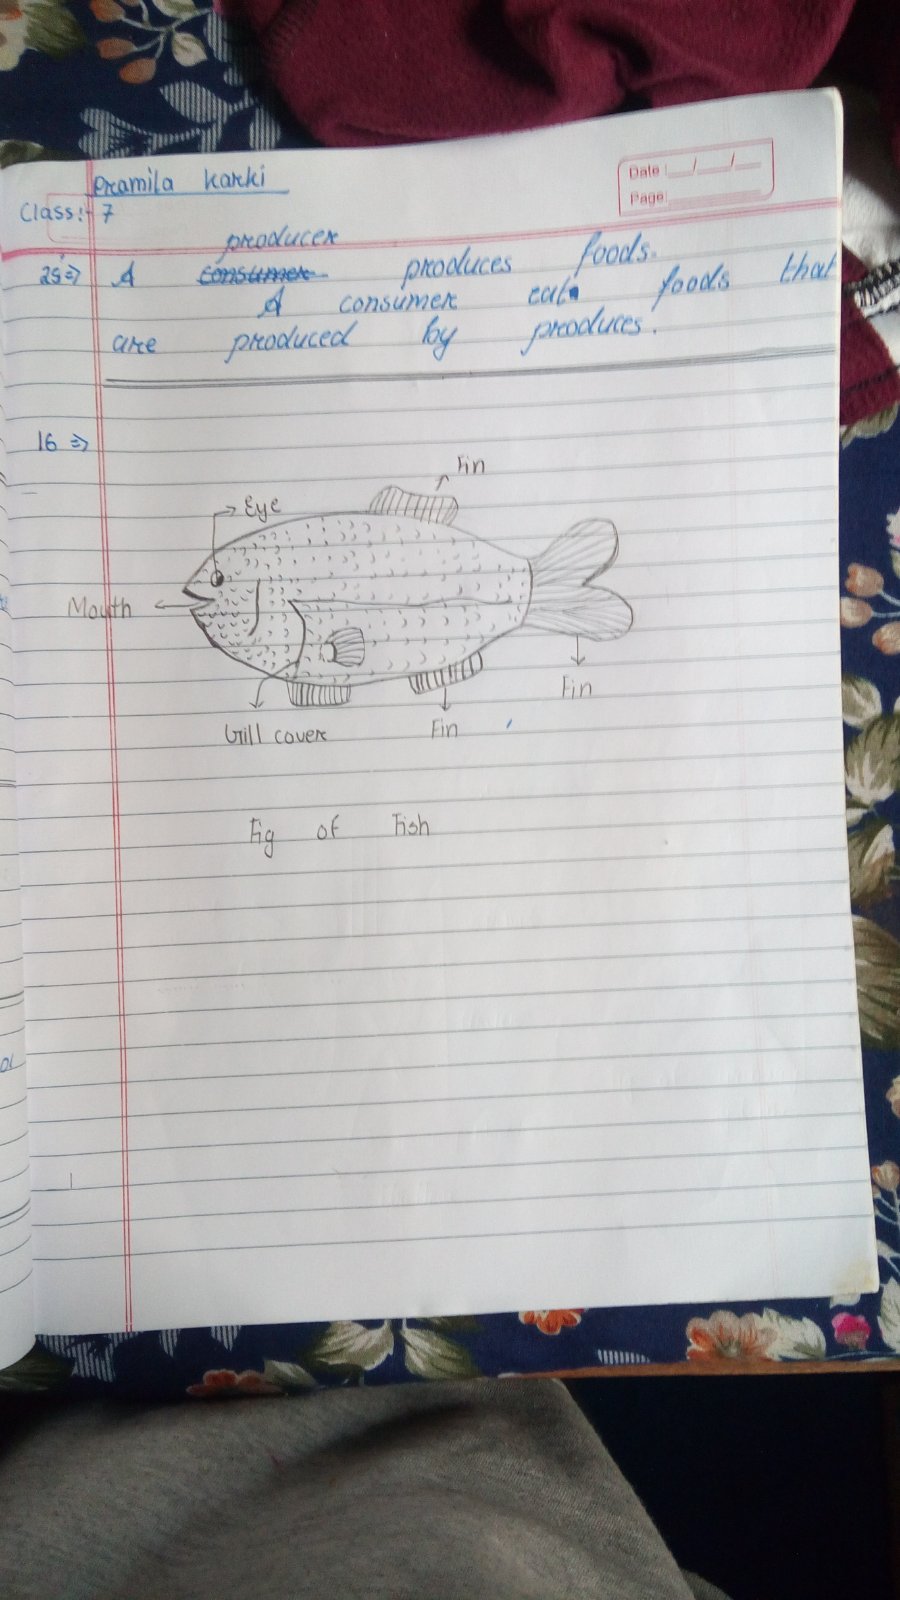 Pramila Karki
Date : __/__/__
Page:
Class:- 7
producer
25⇒ A consumer produces foods.
A consumer eat foods that
are produced by produces.
16 ⇒
Fin
Eye
Mouth
Fin
Gill cover Fin
Fig of Fish